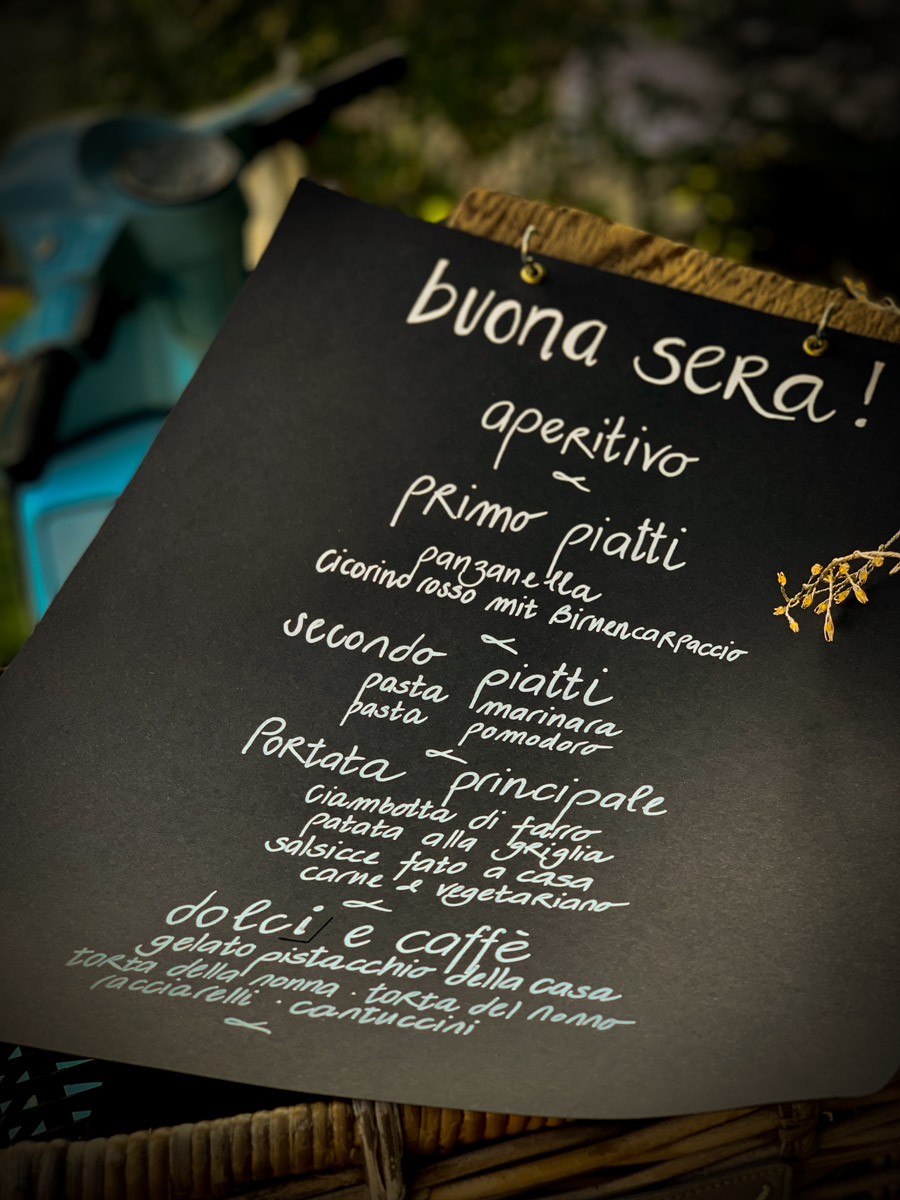 buona sera!
aperitivo
primo piatti
panzanella
Cicorino rosso mit Birnencarpaccio
secondo piatti
pasta marinara
pasta pomodoro
Portata principale
ciambotta di farro
patata alla griglia
salsicce fato a casa
carne e vegetariano
dolci e caffè
gelato pistacchio della casa
torta della nonna · torta del nonno
racciarelli · cantuccini